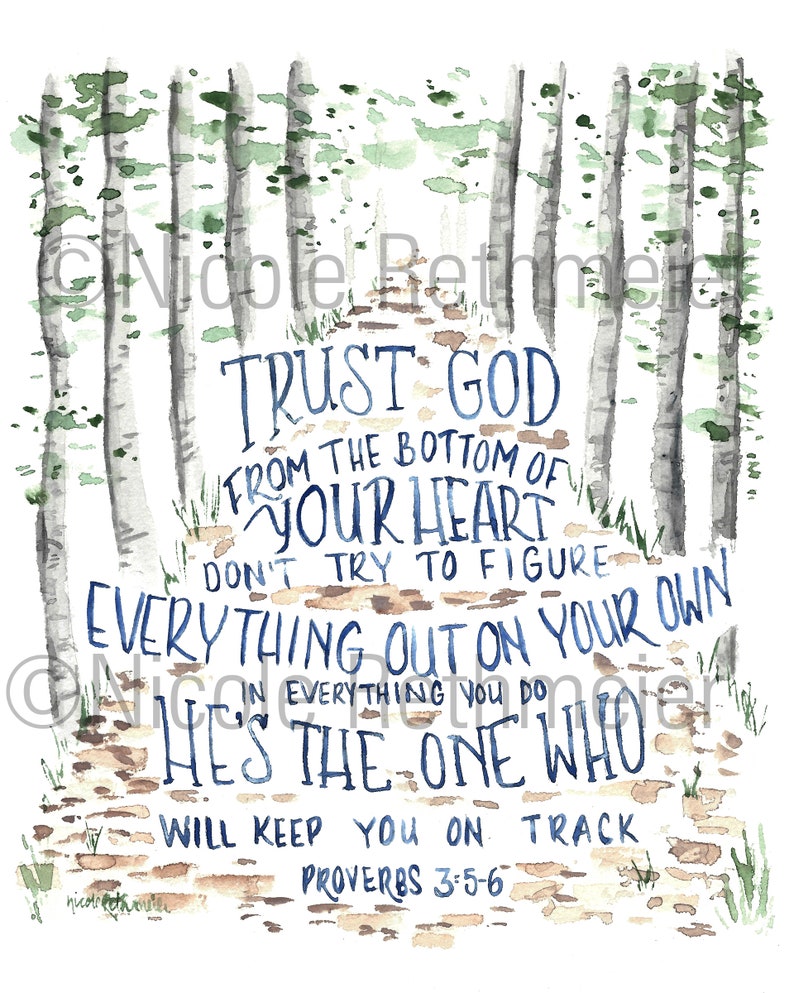 ©Nicole Rethmeier
TRUST GOD
FROM THE BOTTOM OF
YOUR HEART
DON'T TRY TO FIGURE
EVERYTHING OUT ON YOUR OWN
©Nicole Rethmeier
IN EVERYTHING YOU DO
HE'S THE ONE WHO
WILL KEEP YOU ON TRACK
PROVERBS 3:5-6
nicole rethmeier